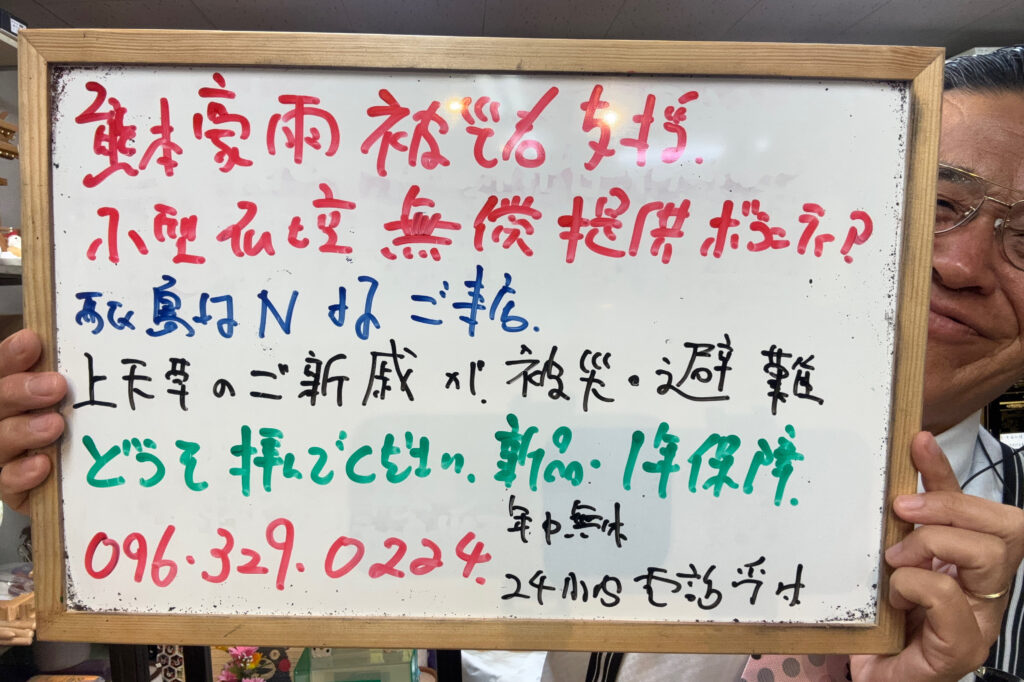 熊本豪雨 被災者 支援.
小型仏壇 無償提供ボランティア
鹿島はN様 ご来店.
上天草のご新戚が. 被災・避難
どうぞ拝んでください. 新品・1年保障.
096.329.0224.
年中無休
24hrs 電話受付